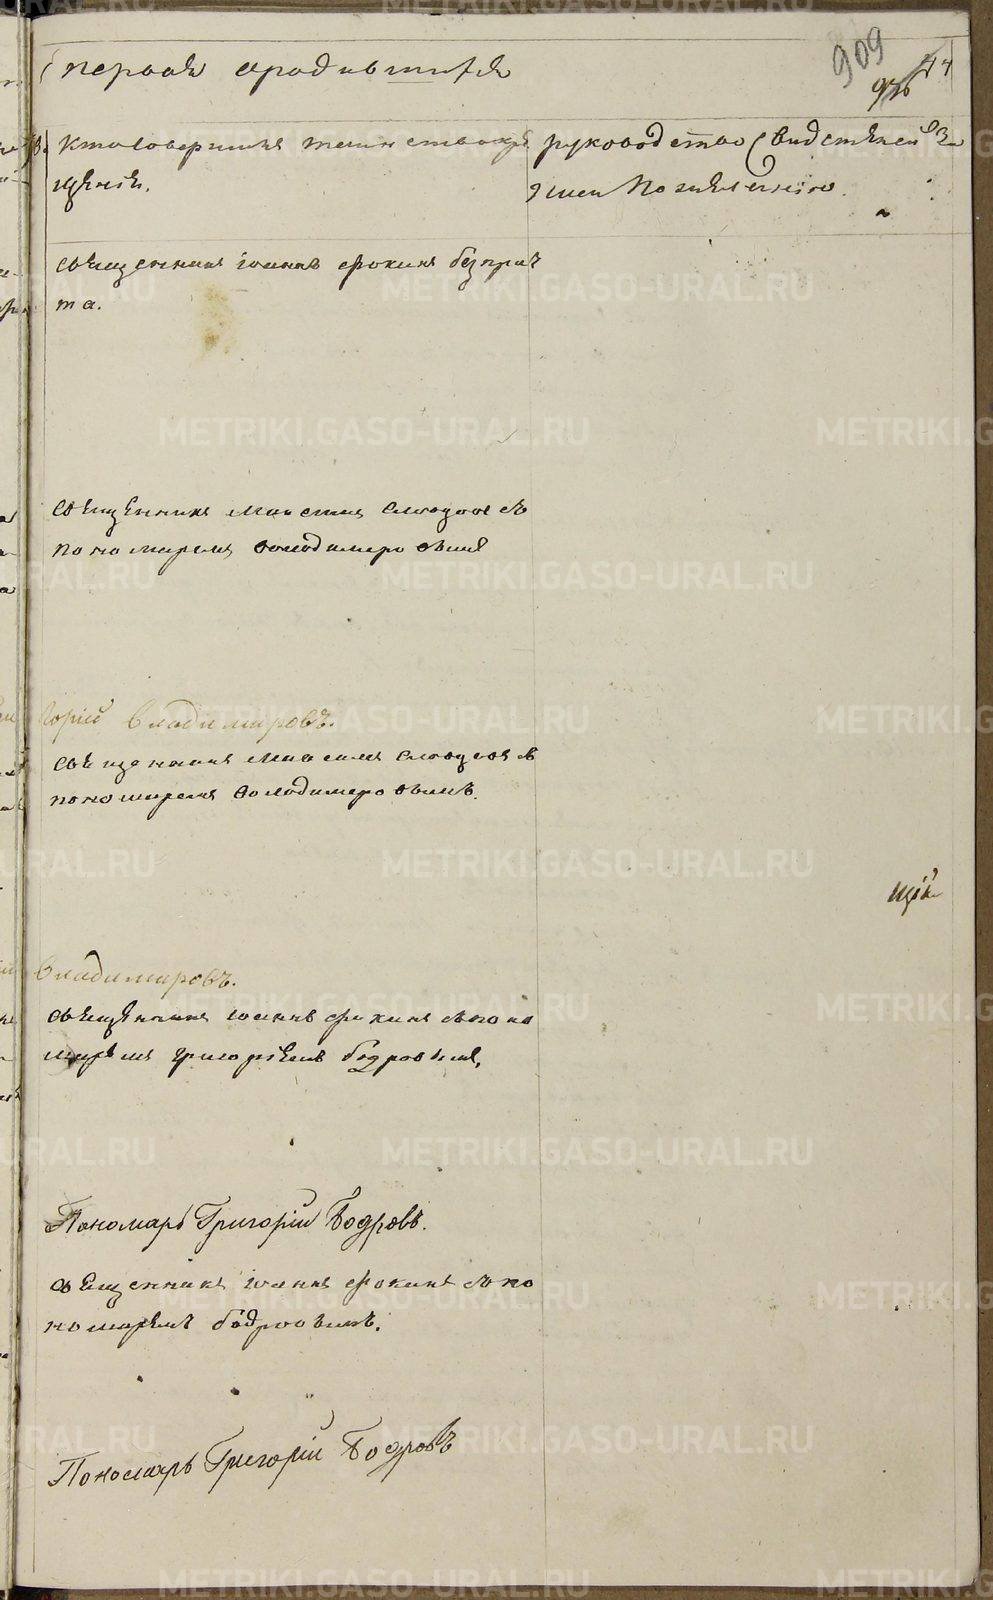 первая о родившихся
909
976
Кто совершилъ таинство кре
щенія.
рукоприкладство свидетелей за
писи по желанію.
священникъ іоаннъ фокинъ безприч
та.
священникъ максимъ словцовъ съ
пономаремъ володимеровымъ
горій Владимировъ.
священникъ максимъ словцовъ съ
пономаремъ володимеровымъ.
Владимировъ.
священникъ іоаннъ фокинъ съ поно
маремъ григоріемъ бодровымъ,
Пономарь Григорій Бодровъ.
священникъ іоаннъ фокинъ съ по
номаремъ бодровымъ.
Пономарь Григорій Бодровъ
METRIKI.GASO-URAL.RU